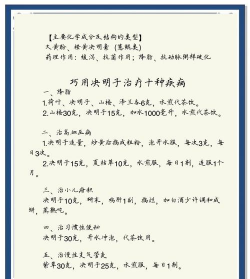 【主要化学成分及结构的类型】
大黄酚、橙黄决明素（蒽醌类）
药理作用：缓泻、抗菌作用；降脂、抗动脉粥样硬化
巧用决明子治疗十种疾病
一、降脂
1.荷叶，决明子，山楂，泽兰各6克，水煎代茶饮。
2.山楂30克，决明子15克，加水1000毫升，水煎代茶饮。
二、治高血压病
1.决明子适量，炒黄后捣成粗粉，泡开水服，每次3克，每
日3次。
2.决明子15克，夏枯草10克，水煎服，每日1剂，连服1个
月。
三、治小儿疳积
决明子10克，研末，鸡肝1副，捣烂，加白酒少许调和成
饼，蒸熟吃。
四、治习惯性便秘
决明子30克，开水冲泡，代茶饮用。
五、治慢性支气管炎
30克，决明子25克，水煎服，每日1剂。